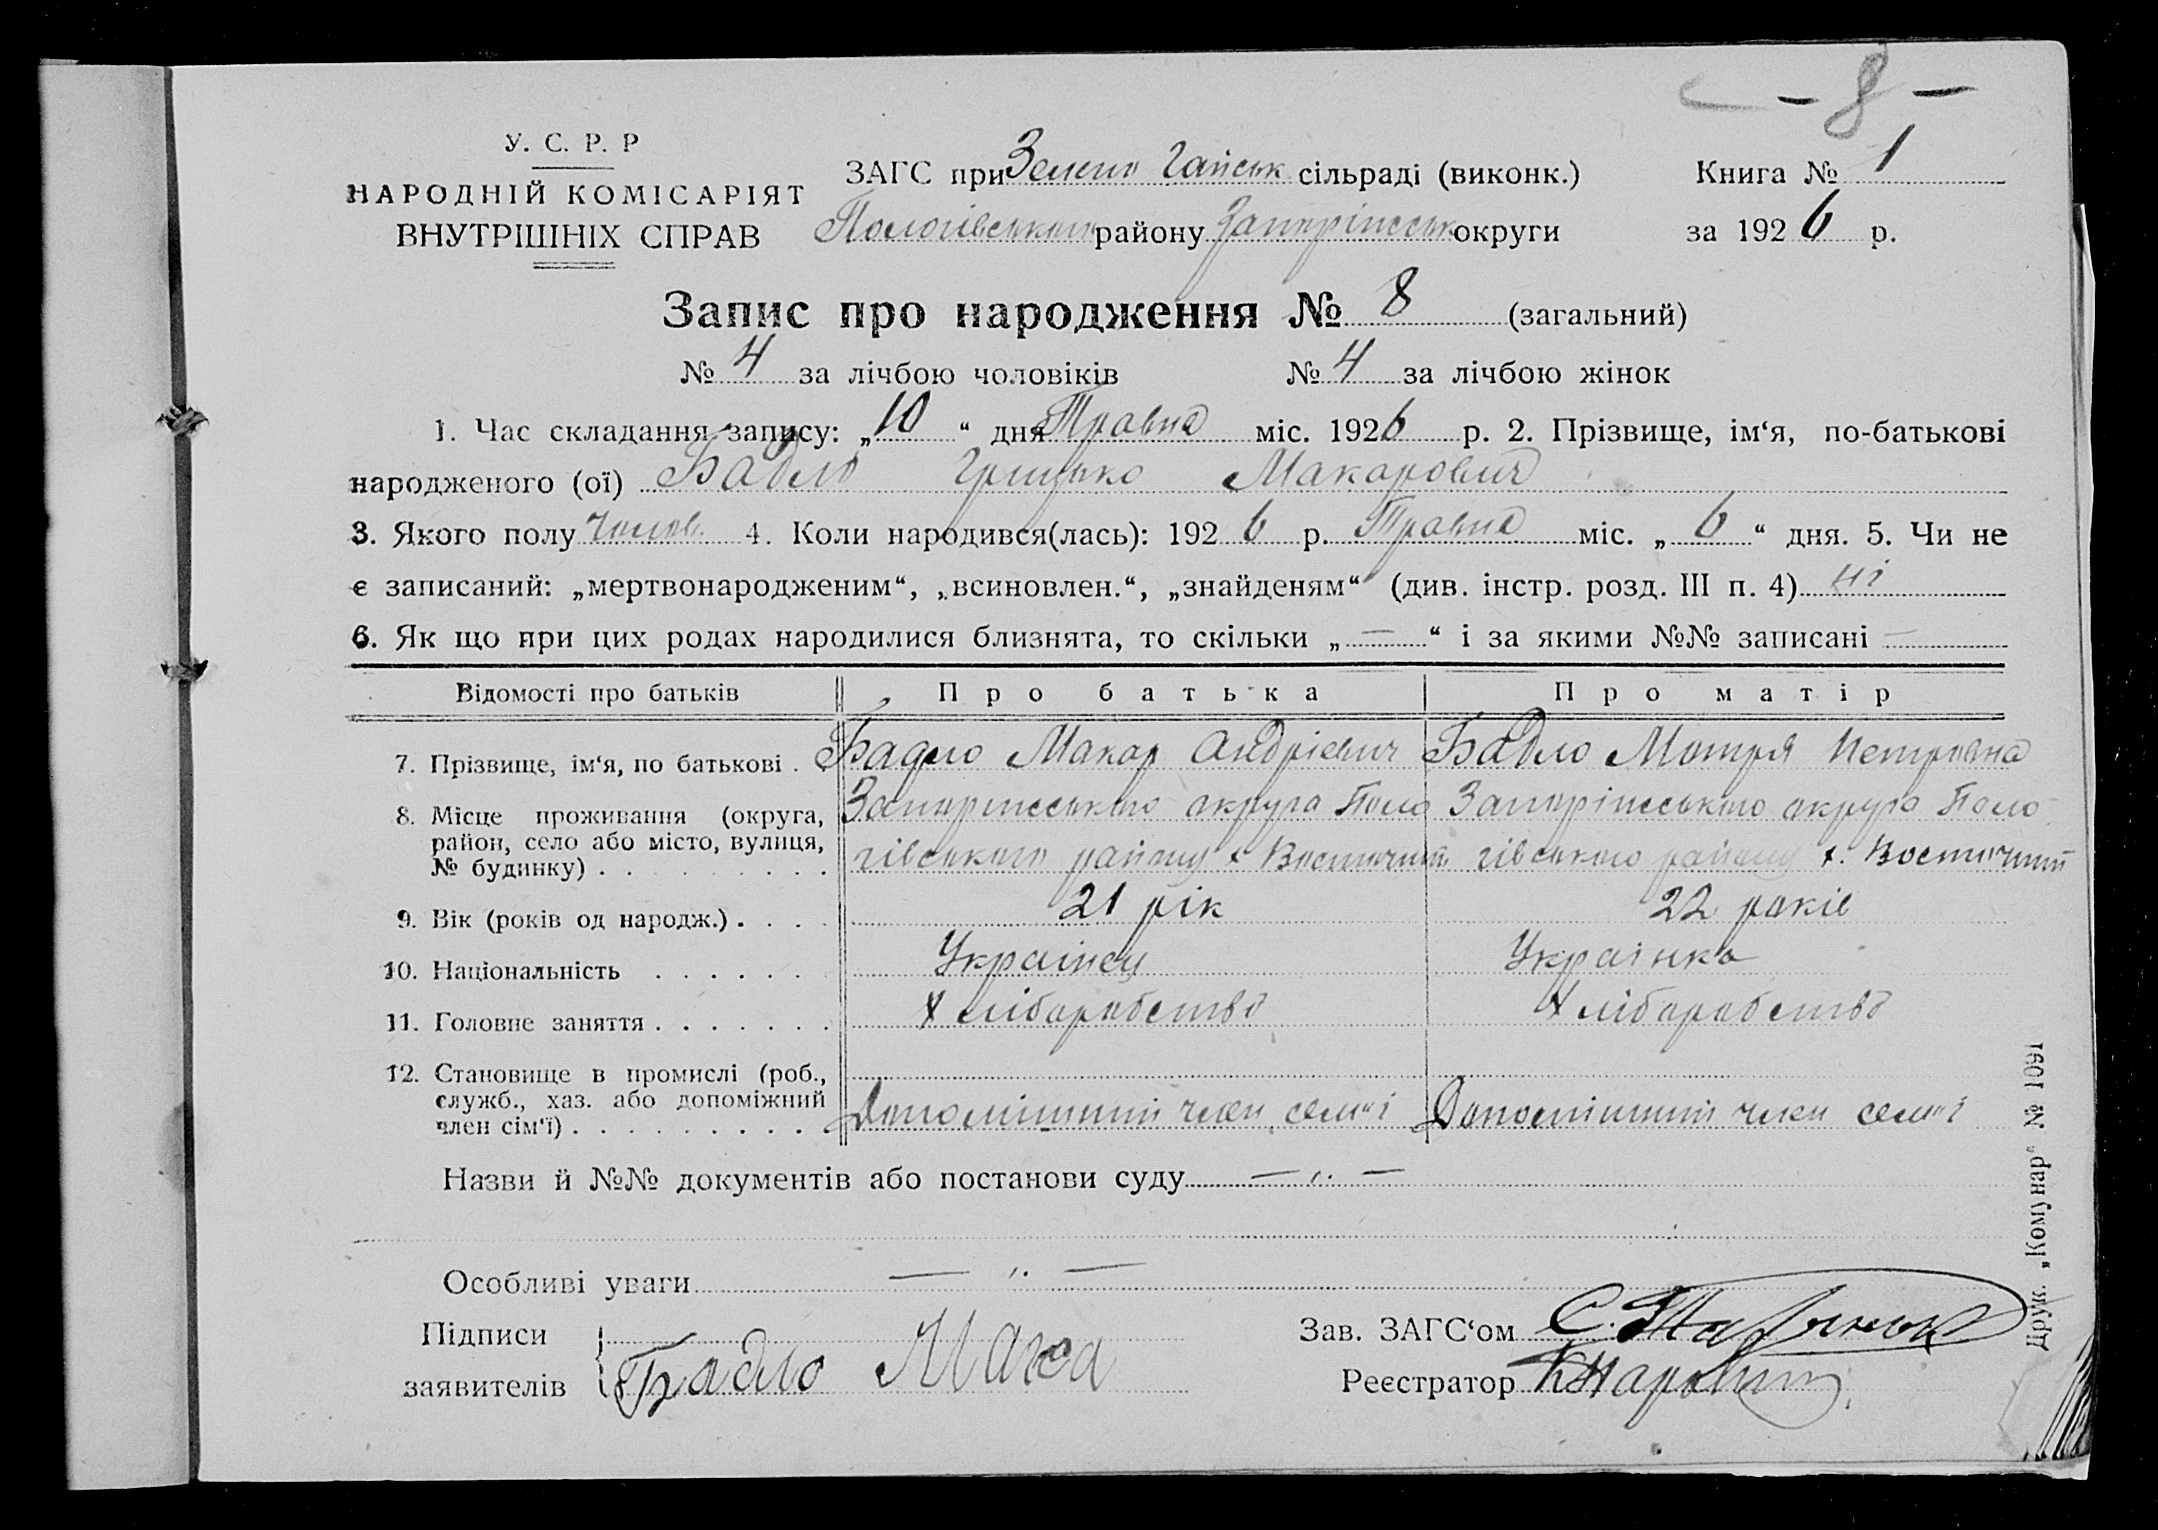 - 8 -
У. С. Р. Р
НАРОДНІЙ КОМІСАРІЯТ
ВНУТРІШНІХ СПРАВ
ЗАГС при Зелено Гайськ сільраді (виконк.)
Пологівського району Запоріжськ округи
Книга № 1
за 1926 р.
Запис про народження № 8 (загальний)
№ 4 за лічбою чоловіків № 4 за лічбою жінок
1. Час складання запису: „10“ дня Травня міс. 1926 р. 2. Прізвище, ім‘я, по-батькові
народженого (ої) Бадло Грицько Макарович
3. Якого полу Чолов. 4. Коли народився(лась): 1926 р. Травня міс. „6“ дня. 5. Чи не
є записаний: „мертвонародженим“, „всиновлен.“, „знайденям“ (див. інстр. розд. III п. 4) ні
6. Як що при цих родах народилися близнята, то скільки „—“ і за якими №№ записані —
Відомості про батьків Про батька Про матір
7. Прізвище, ім‘я, по батькові . Бадло Макар Андрієвич Бадло Мотря Петровна
8. Місце проживання (округа, Запоріжського округа Поло Запоріжського округа Поло
район, село або місто, вулиця, гівського району х Восточний гівського району х. Восточний
№ будинку) . . . . . . . . .
9. Вік (років од народж.) . . . . 21 рік 22 років
10. Національність . . . . . . Українец Українка
11. Головне заняття . . . . . . . Хліборобство Хліборобство
12. Становище в промислі (роб.,
служб., хаз. або допоміжний
член сім‘ї) . . . . . . . . . Допоміжний член семʼі Допоміжний член семʼі
Назви й №№ документів або постанови суду — ,, —
Особливі уваги — ,, —
Підписи
заявителів Бадло Мака
Зав. ЗАГС‘ом
Реєстратор
Друк. „Комунар“ № 1091